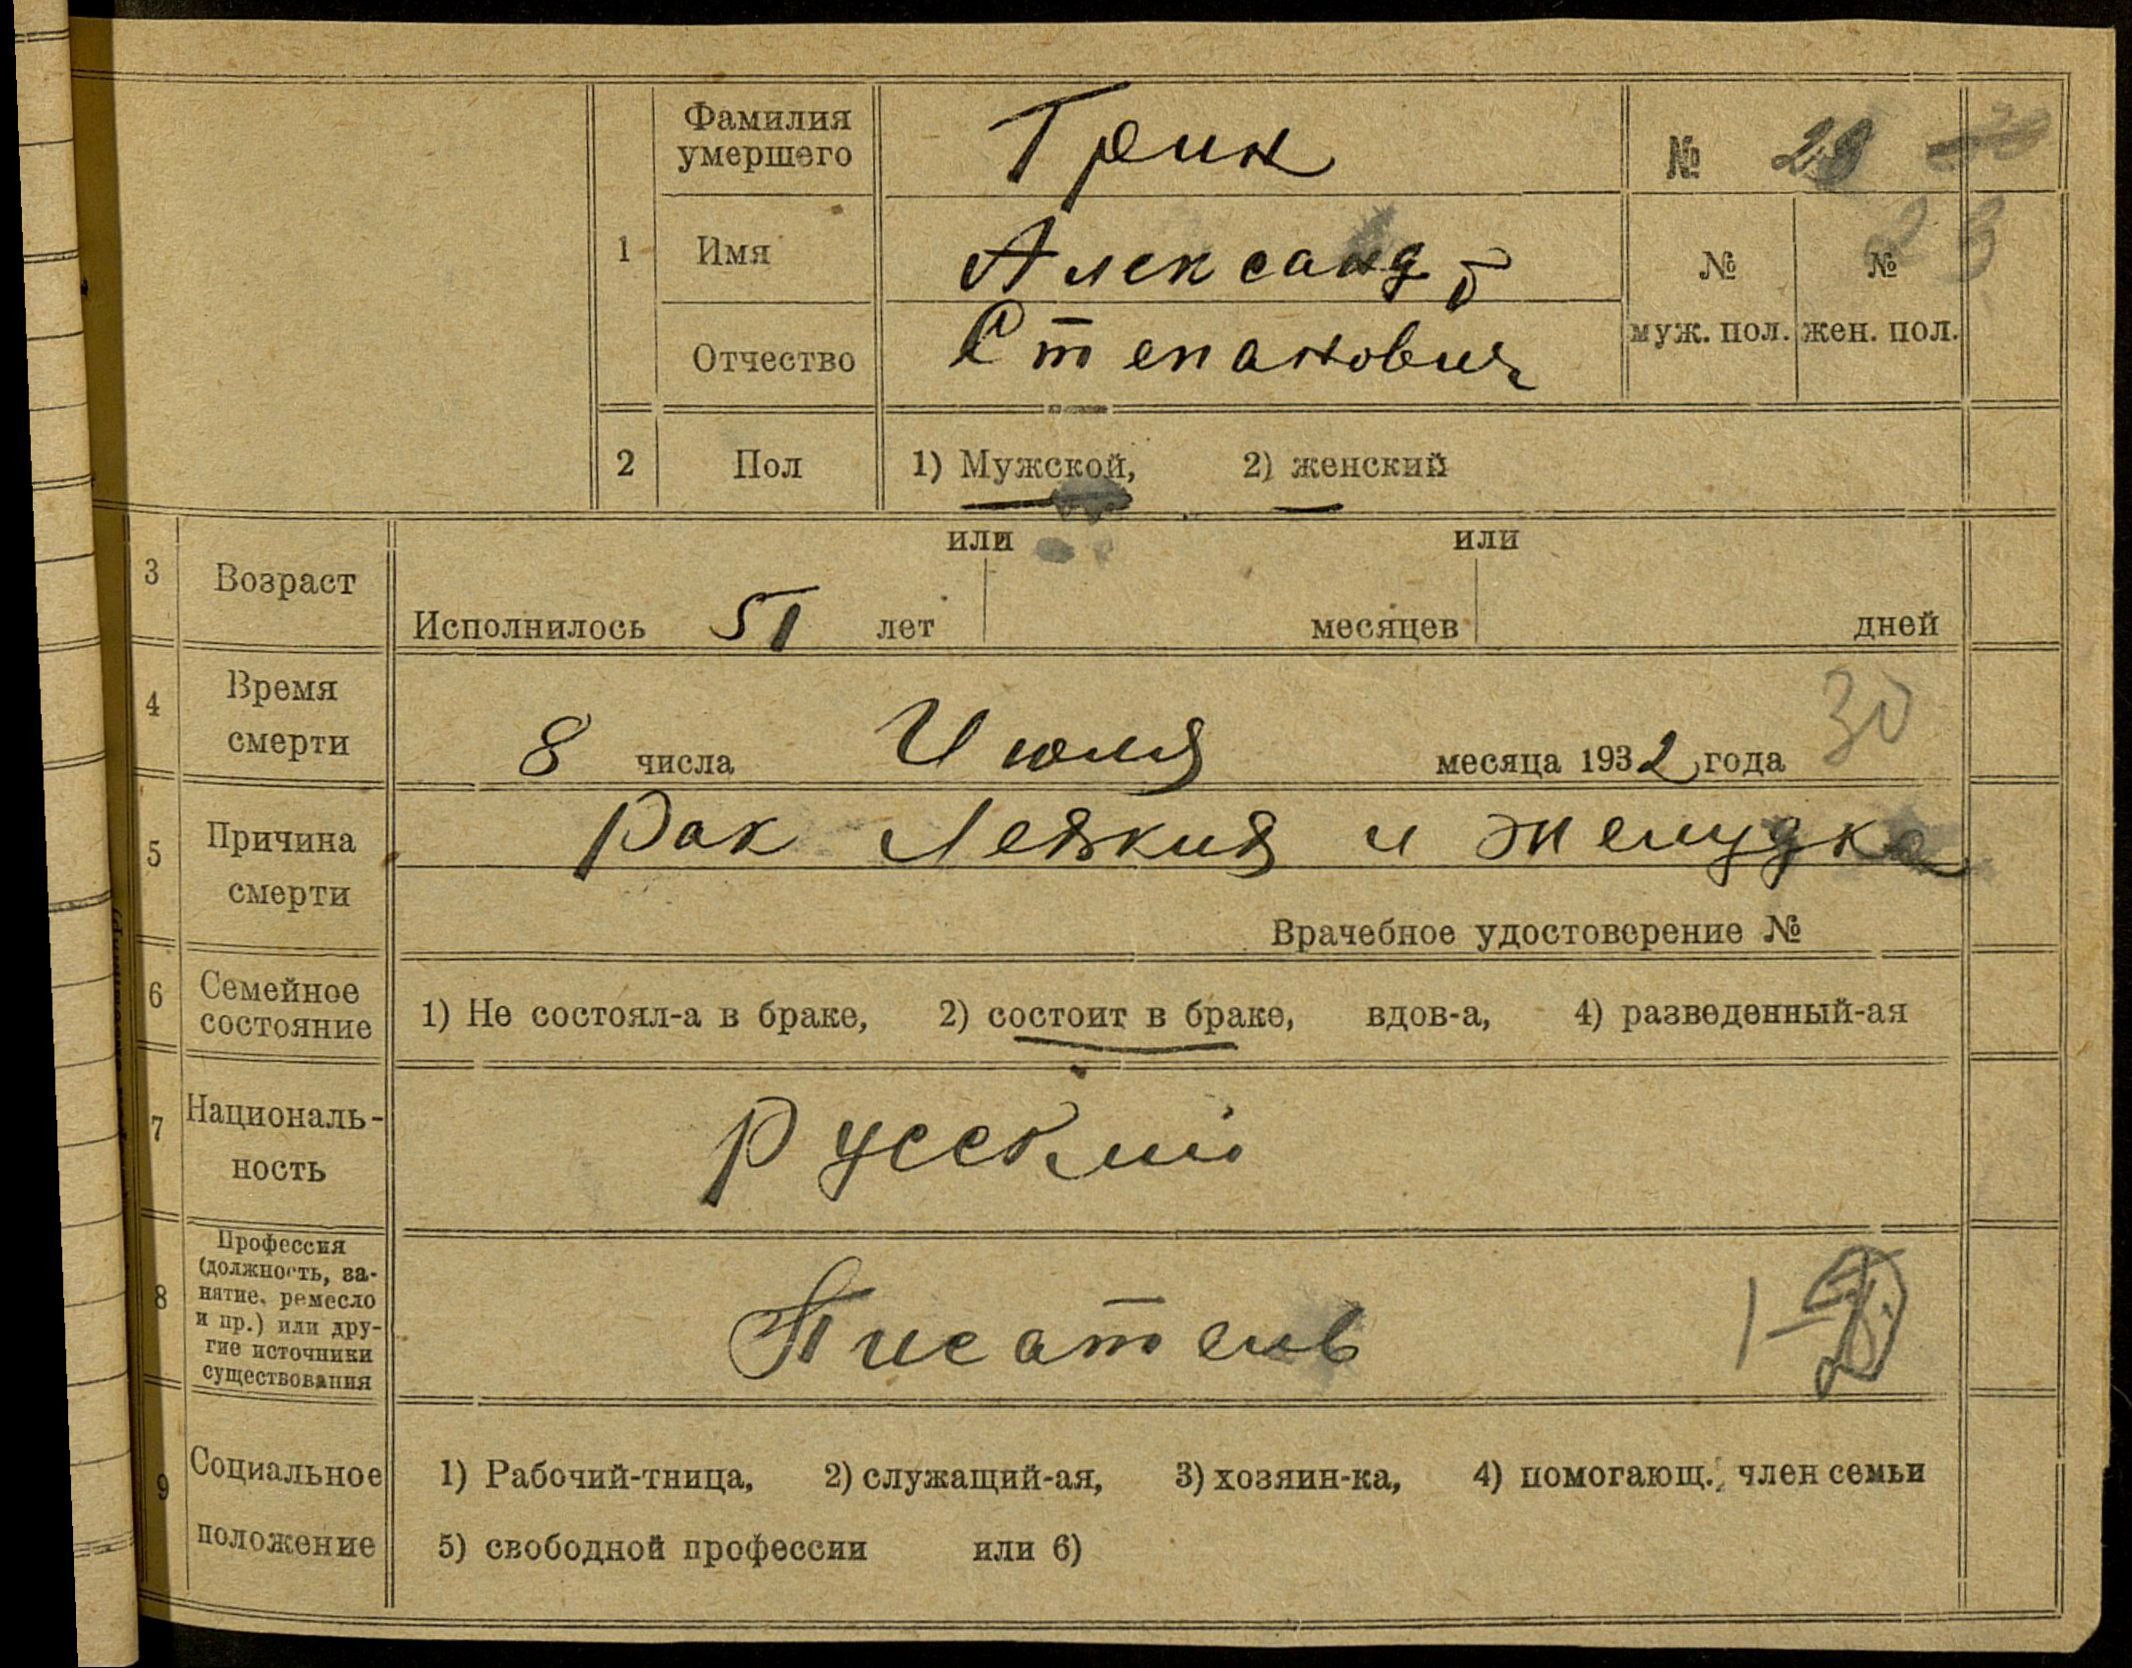 Фамилия умершего Грин
№ 29
1 Имя Александр
№ муж. пол. № жен. пол.
Отчество Степанович
2 Пол 1) Мужской, 2) женский
3 Возраст Исполнилось 51 лет или месяцев или дней
4 Время смерти 8 числа Июля месяца 1932 года 30
5 Причина смерти Рак Легких и желудка
Врачебное удостоверение №
6 Семейное состояние 1) Не состоял-а в браке, 2) состоит в браке, вдов-а, 4) разведенный-ая
7 Националь-
ность Русский
8 Профессия
(должность, за-
нятие, ремесло
и пр.) или дру-
гие источники
существования
Писатель
9 Социальное положение 1) Рабочий-тница, 2) служащий-ая, 3) хозяин-ка, 4) помогающ., член семьи
5) свободной профессии или 6)